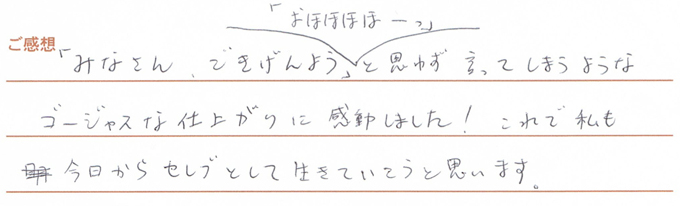 「おほほほほーっ」
ご感想
「みなさん、ごきげんよう」と思わず言ってしまうような
ゴージャスな仕上がりに感動しました！これで私も
今日からセレブとして生きていこうと思います。